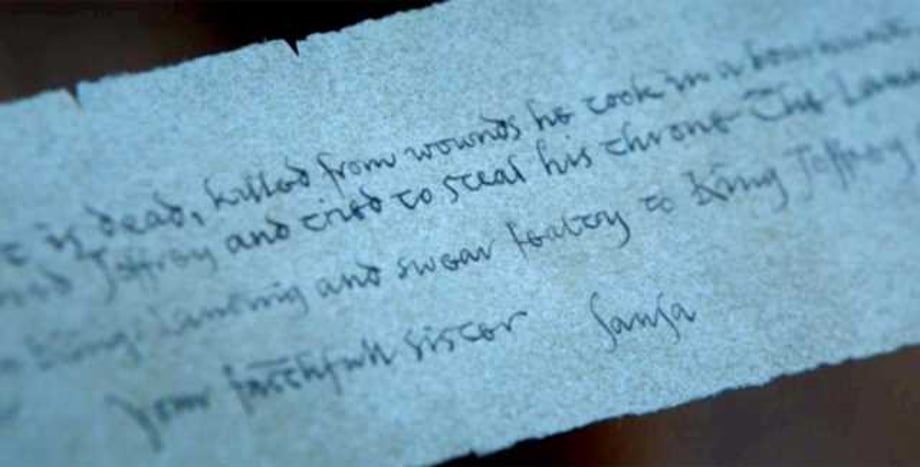 is dead, killed from wounds he took in a boar hunt
Joffrey and tried to steal his throne The
King's Landing and swear fealty to King Joffrey
your faithfull sister Sansa